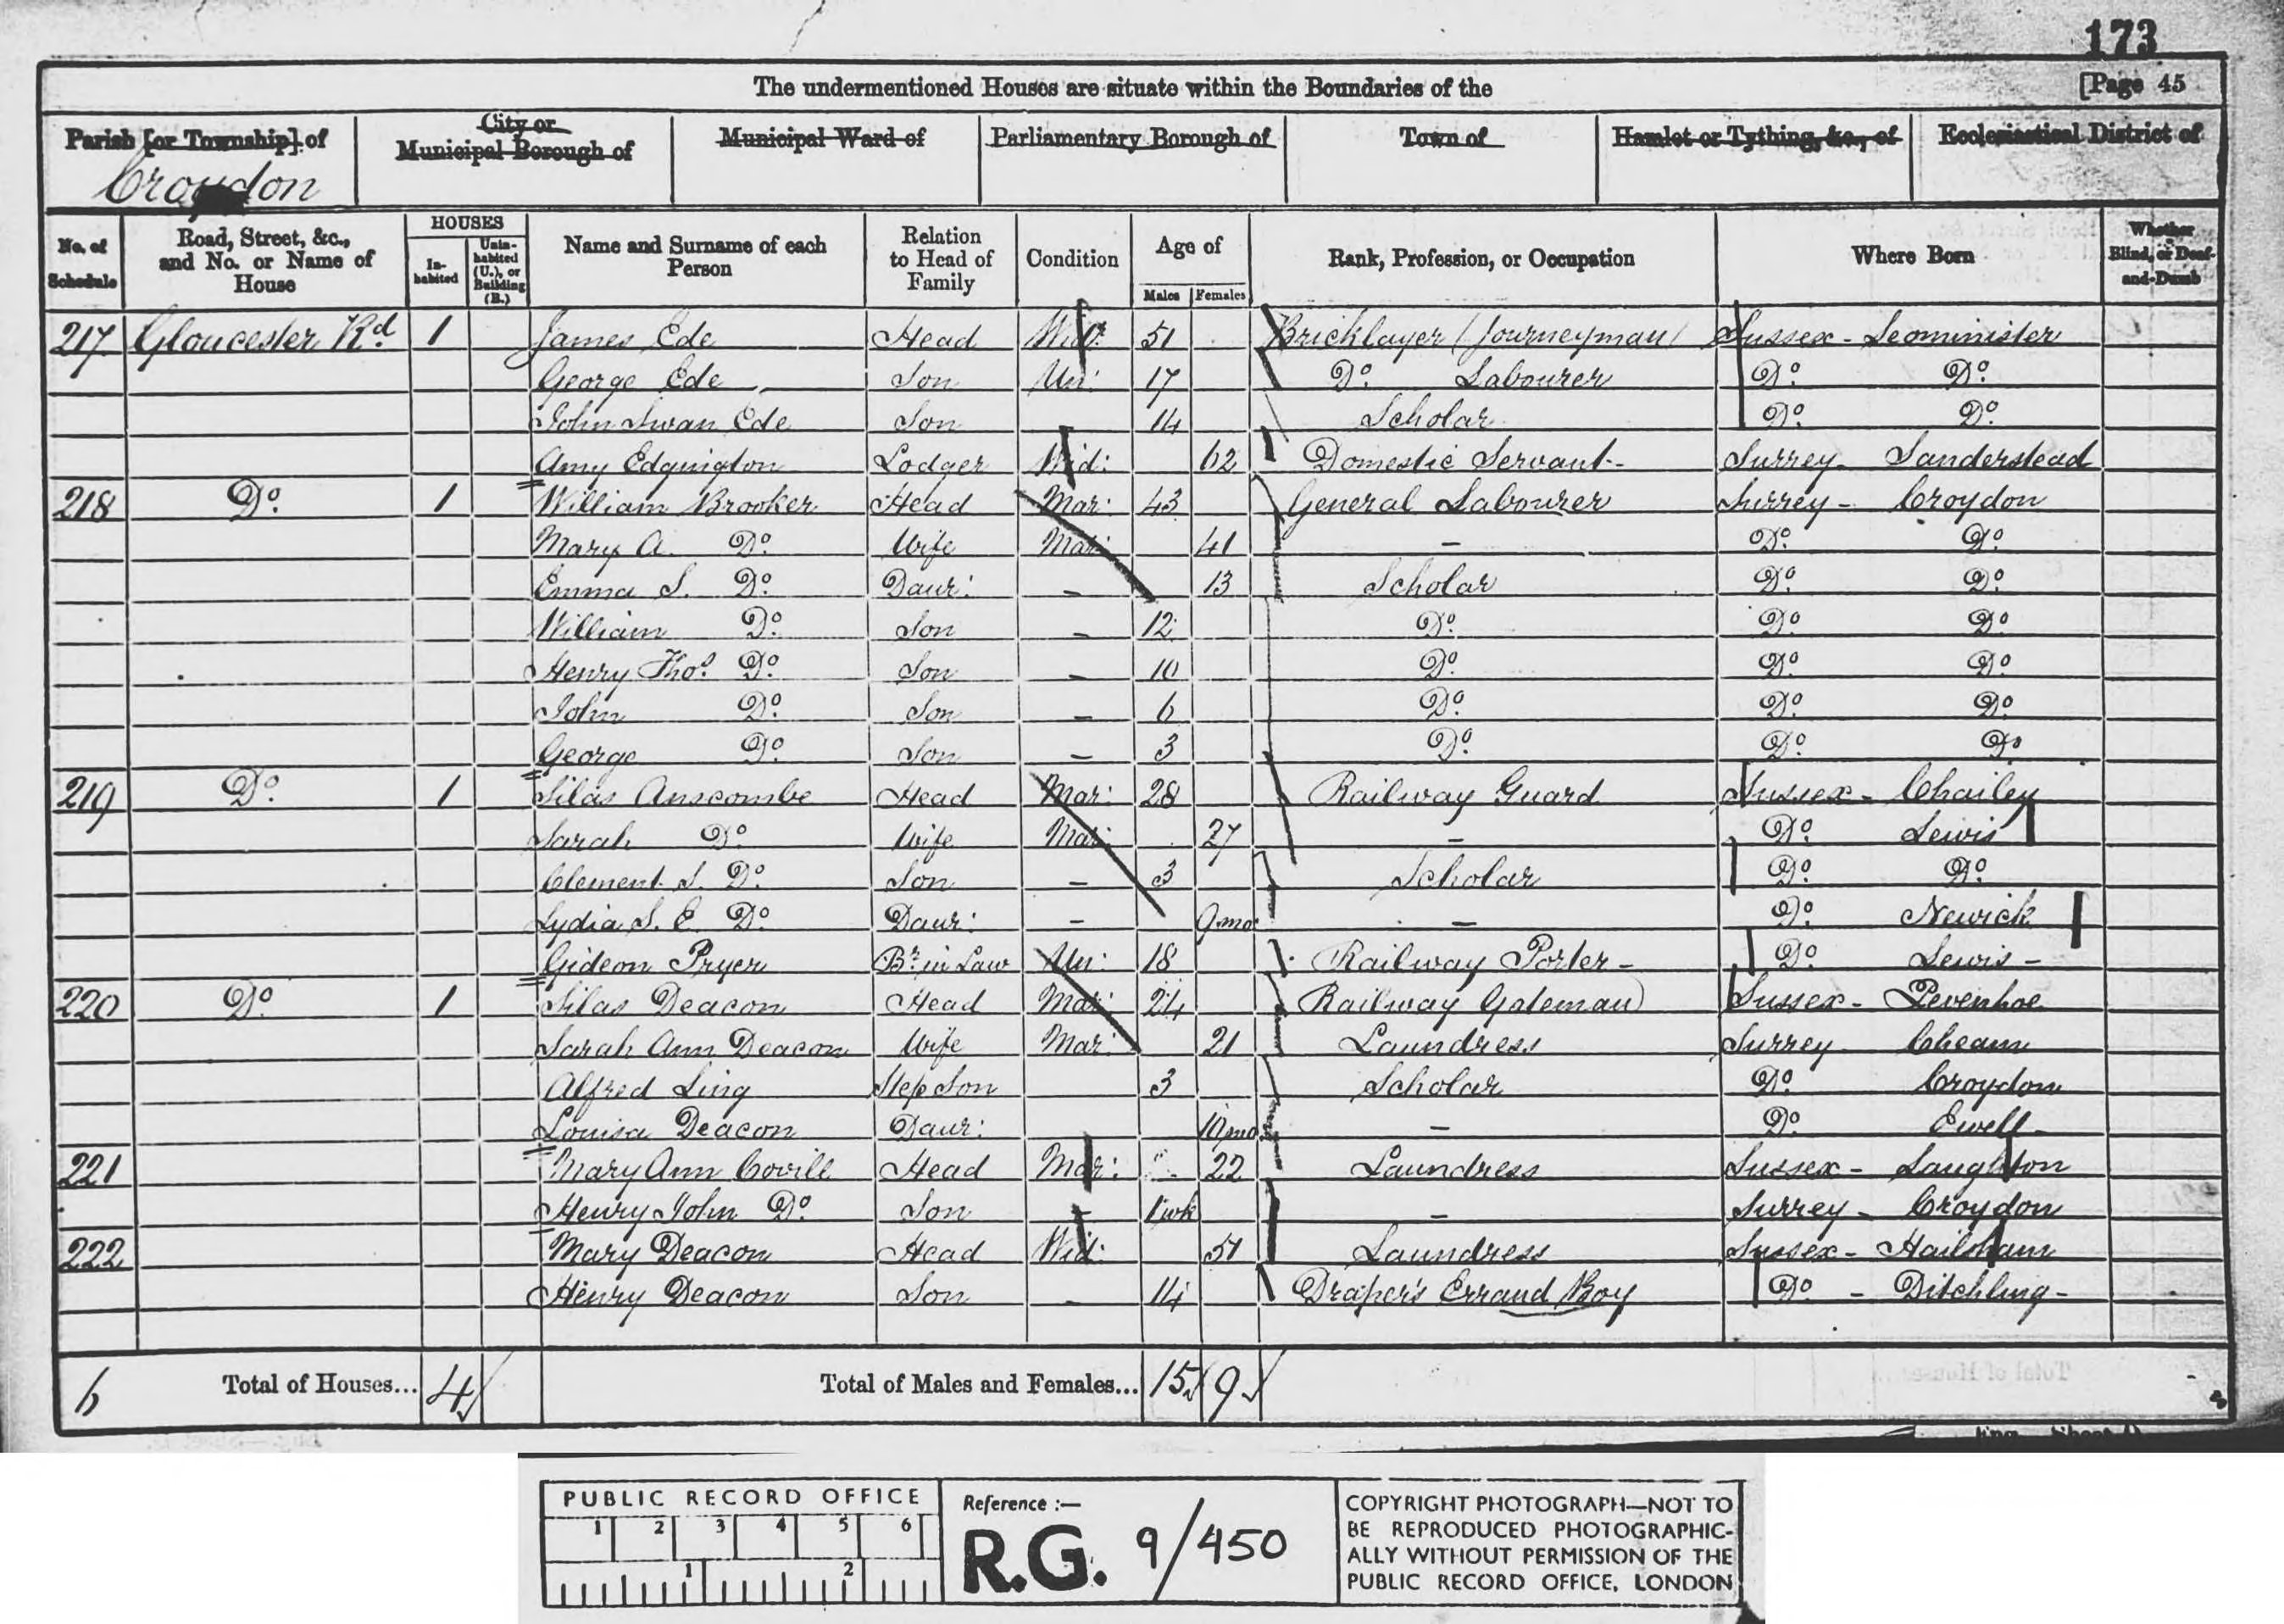 173
The undermentioned Houses are situate within the Boundaries of the [Page 45
Parish [or Township] of City or Municipal Borough of Municipal Ward of Parliamentary Borough of Town of Hamlet or Tything, &c., of Ecclesiastical District of
Croydon
No. of Schedule Road, Street, &c., and No. or Name of House HOUSES Inhabited Uninhabited (U.), or Building (B.) Name and Surname of each Person Relation to Head of Family Condition Age of Males Females Rank, Profession, or Occupation Where Born Whether Blind, or Deaf-and-Dumb
217 Gloucester Rd 1 James Ede Head Widr 51 Bricklayer (Journeyman) Sussex - Leominister
George Ede Son Un: 17 Do. Labourer Do. Do.
John Swan Ede Son 14 Scholar Do. Do.
Amy Edquington Lodger Wid: 62 Domestic Servant - Surrey - Sanderstead
218 Do. 1 William Brooker Head Mar: 43 General Labourer Surrey - Croydon
Mary A. Do. Wife Mar: 41 - Do. Do.
Emma S. Do. Daur: - 13 Scholar Do. Do.
William Do. Son - 12 Do. Do. Do.
Henry Thos. Do. Son - 10 Do. Do. Do.
John Do. Son - 6 Do. Do. Do.
George Do. Son - 3 Do. Do. Do.
219 Do. 1 Silas Anscombe Head Mar: 28 Railway Guard Sussex - Chailey
Sarah Do. Wife Mar: 27 - Do. Lewis
Clement S. Do. Son - 3 Scholar Do. Do.
Lydia S. E. Do. Daur: - 9 mo - Do. Newick
Gideon Pryer Br. in Law Un: 18 Railway Porter - Do. Lewis -
220 Do. 1 Silas Deacon Head Mar: 24 Railway Gateman Sussex - Pevenhoe
Sarah Ann Deacon Wife Mar: 21 Laundress Surrey Cheam
Alfred Ling Step Son 3 Scholar Do. Croydon
Louisa Deacon Daur: 10 mo - Do. Ewell -
221 Mary Ann Covill Head Mar: 22 Laundress Sussex - Laughton
Henry John Do. Son - 1 wk - Surrey - Croydon
222 Mary Deacon Head Wid: 51 Laundress Sussex - Hailsham
Henry Deacon Son - 14 Draper's Errand Boy Do. - Ditchling -
6 Total of Houses... 4 Total of Males and Females... 15 9
PUBLIC RECORD OFFICE
1 2 3 4 5 6
1 2
Reference :-
R.G. 9/450
COPYRIGHT PHOTOGRAPH—NOT TO
BE REPRODUCED PHOTOGRAPHIC-
ALLY WITHOUT PERMISSION OF THE
PUBLIC RECORD OFFICE, LONDON